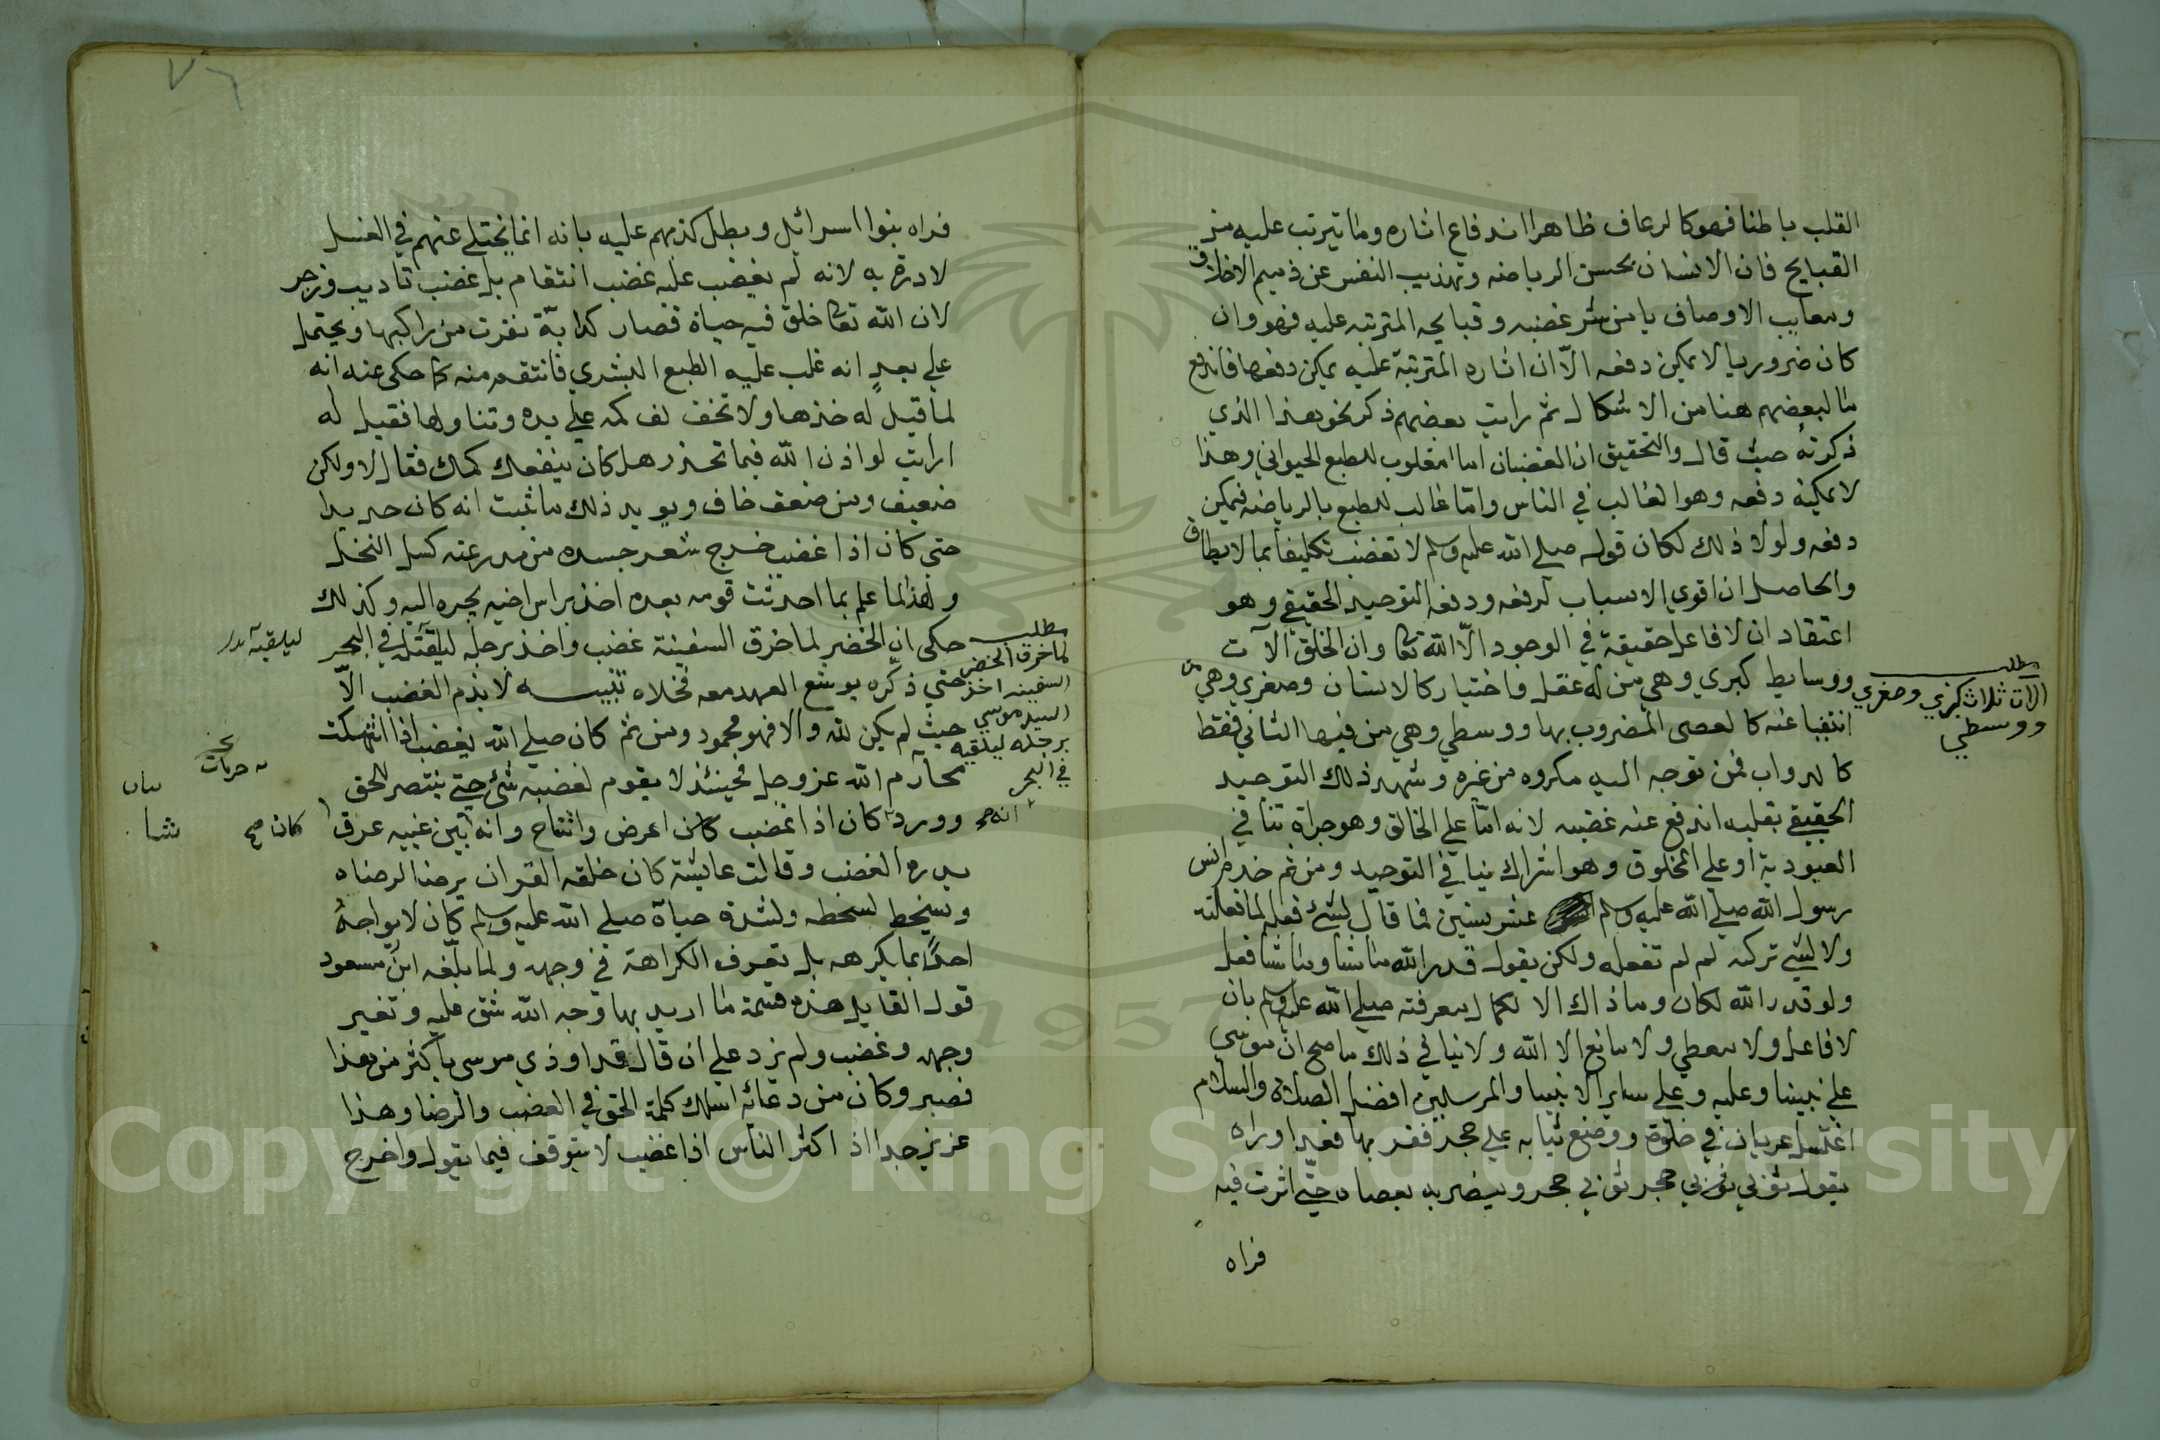 القلب باطنا فهو كالرعاف ظاهرا اندفاع اثاره وما يترتب عليه من
القبايح فان الانسان بحسن الرياضه وتهذيب النفس عن ذميم الاخلاق
ومعايب الاوصاف يامن شر غضبه وقبايحه المترتبه عليه فهو وان
كان ضروريا لا يمكن دفعه الا ان اثاره المترتبة عليه يمكن دفعها فاندفع
ما لبعضهم هنا من الاشكال ثم رايت بعضهم ذكر نحو هذا الذي
ذكرته حيث قال والتحقيق ان الغضبان اما مغلوب للطبع الحيواني وهذا
لا يمكنه دفعه وهو الغالب في الناس واما غالب للطبع بالرياضه فيمكن
دفعه ولولا ذلك لكان قوله صلي الله عليه وسلم لا تغضب تكليفا بما لا يطاق
والحاصل ان اقوي الاسباب لرفعه ودفعه التوحيد الحقيقي وهو
اعتقاد ان لا فاعل حقيقة في الوجود الا الله تعا وان الخلق الات
ووسايط كبري وهي من له عقل واختيار كالانسان وصغري وهي من
انتفيا عنه كالعصي المضروب بها ووسطي وهي من فيها الثاني فقط
كالدواب فمن توجه اليه مكروه من غيره وشهد ذلك التوحيد
الحقيقي بقلبه اندفع عنه غضبه لانه اما علي الخالق وهو جراة تنافي
العبودية او علي المخلوق وهو اشراك ينافي التوحيد ومن ثم خدم انس
رسول الله صلي الله عليه وسلم عشر سنين فما قال لشئ فعله لما فعلته
ولا لشي تركه لم لم تفعله ولكن يقول قدر الله ما شا وما شا فعل
ولو قدر الله لكان وما ذاك الا لكمال معرفته صلي الله عليه وسلم بان
لا فاعل ولا معطي ولا مانع الا الله ولا ينافي ذلك ما صح ان موسي
علي نبينا وعليه وعلي ساير الانبيا والمرسلين افضل الصلاة والسلام
اغتسل عريان في خلوة ووضع ثيابه علي حجر ففر بها فعدا وراه
يقول ثوبي ثوبي حجر ثوبي حجر ويضربه بعصاه حتي اثرت فيه
فراه
مطلب
الات ثلاث كبري وصغري
ووسطي
٧٦
فراه بنوا اسرائيل وبطل كذبهم عليه بانه انما يختلي عنهم في الغسل
لادرة به لانه لم يغضب عليه غضب انتقام بل غضب تاديب وزجر
لان الله تعا خلق فيه حياة فصار كدابة نفرت من راكبها ويحتمل
علي بعد انه غلب عليه الطبع البشري فانتقم منه كما حكي عنه انه
لما قيل له خذها ولا تخف لف كمه علي يده وتناولها فقيل له
ارايت لو اذن الله فيما تحذر هل كان ينفعك كمك فقال لا ولكن
ضعيف ومن ضعف خاف ويويد ذلك ما ثبت انه كان حديدا
حتي كان اذا غضب خرج شعر جسده من مدرعته كسل النخل
ولهذا لما علم بما احدثت قومه بعده اخذ براس اخيه يجره اليه وكذلك
حكي ان الخضر لما خرق السفينة غضب واخذ برجله ليلقيه في البحر
حتي ذكره يوشع العهد معه فخلاه تنبيه لا يذم الغضب الا
حيث لم يكن لله والا فهو محمود ومن ثم كان صلي الله يغضب اذا انتهكت
محارم الله عز وجل فحينئذ لا يقوم لغضبه شئ حتي ينتصر للحق
وورد كان اذا غضب كان اعرض واشاح وانه بين عينيه عرق
يدره الغضب وقالت عايشة كان خلقه القران يرضا لرضاه
ويسخط لسخطه ولشدة حياة صلي الله عليه وسلم كان لا يواجه
احدا بما يكرهه بل تعرف الكراهة في وجهه ولما بلغه ابن مسعود
قول القايل هذه قسمة ما اريد بها وجه الله شق عليه وتغير
وجهه وغضب ولم يزد علي ان قال قد اوذي موسي باكثر من هذا
فصبر وكان من دعائه اسلك كلمة الحق في الغضب والرضا وهذا
عزيز جدا اذ اكثر الناس اذا غضب لا يتوقف فيما يقول واخرج
مطلب
لما خرق الخضر
السفينه اخذ
السيد موسي
برجله ليلقيه
في البحر
انه صح
ليلقيه
حرمات
كان صح
Copyright © King Saud University
1957